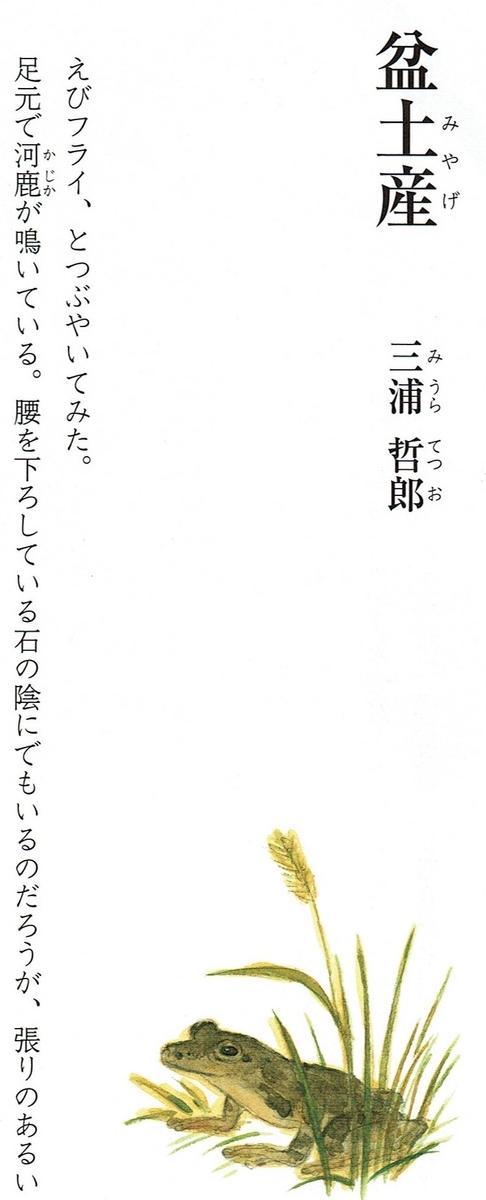 盆土産
みやげ
三浦 哲郎
みうら てつお
えびフライ、とつぶやいてみた。
足元で河鹿が鳴いている。腰を下ろしている石の陰にでもいるのだろうが、張りのあるい
かじか